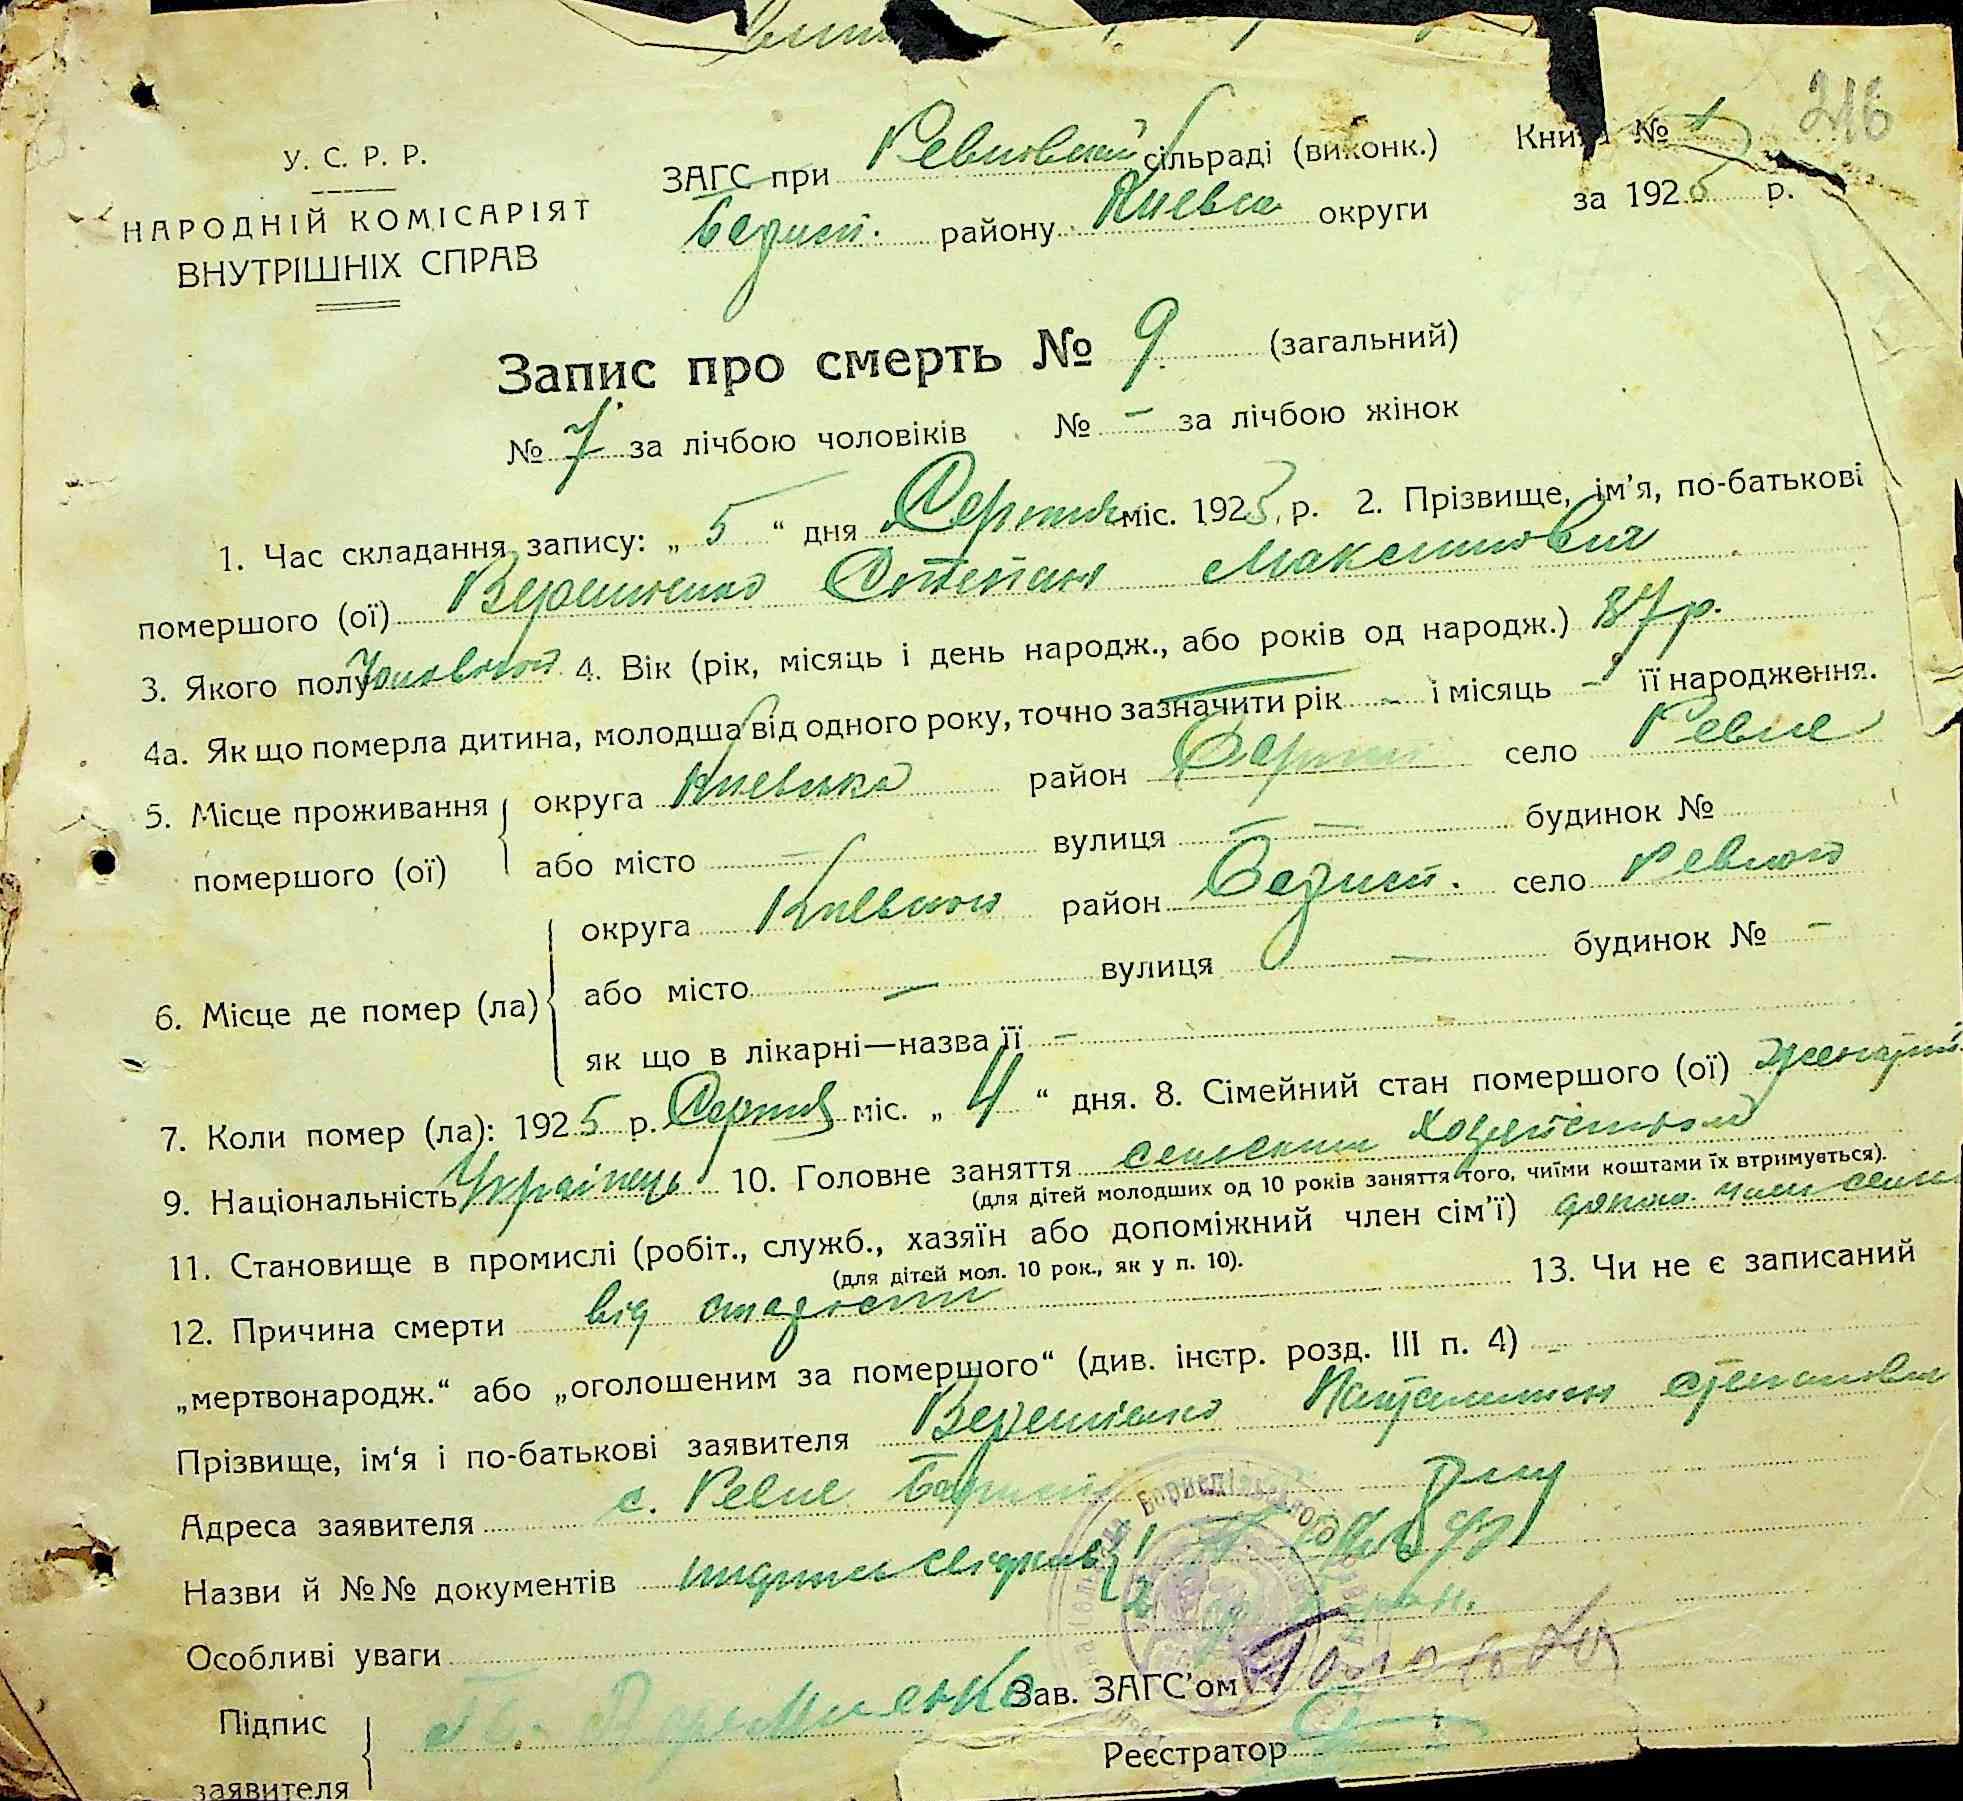 216
У. С. Р. Р.
НАРОДНІЙ КОМІСАРІЯТ
ВНУТРІШНІХ СПРАВ
ЗАГС при Ревновській сільраді (виконк.) Книга № 1
Борисп. району Киевск округи за 1925 р.
Запис про смерть № 9 (загальний)
№ 7 за лічбою чоловіків № – за лічбою жінок
1. Час складання запису: „ 5 “ дня Серпня міс. 1925 р. 2. Прізвище, ім’я, по-батькові
помершого (ої) Веремієнко Степан Максимович
3. Якого полу Чоловічої 4. Вік (рік, місяць і день народж., або років од народж.) 87 р.
4а. Як що померла дитина, молодша від одного року, точно зазначити рік – і місяць – її народження.
5. Місце проживання помершого (ої) округа Киевська район Борисп село Ревне
або місто – вулиця – – будинок №
6. Місце де помер (ла) округа Київської район Борисп. село Ревного
або місто – вулиця – будинок № –
як що в лікарні—назва її –
7. Коли помер (ла): 1925 р. Серпня міс. „ 4 “ дня. 8. Сімейний стан помершого (ої) женатий
9. Національність Українець 10. Головне заняття сельским хозяйством
(для дітей молодших од 10 років заняття того, чиїми коштами їх втримується).
11. Становище в промислі (робіт., служб., хазяїн або допоміжний член сім’ї) допом. член семи
(для дітей мол. 10 рок., як у п. 10).
12. Причина смерти від старости 13. Чи не є записаний
„мертвонародж.“ або „оголошеним за помершого“ (див. інстр. розд. III п. 4) –
Прізвище, ім‘я і по-батькові заявителя Веремієнко Панталимон Степанович
Адреса заявителя с. Ревне Борисп
Назви й №№ документів
Особливі уваги
Підпис заявителя
Зав. ЗАГС’ом
Реєстратор